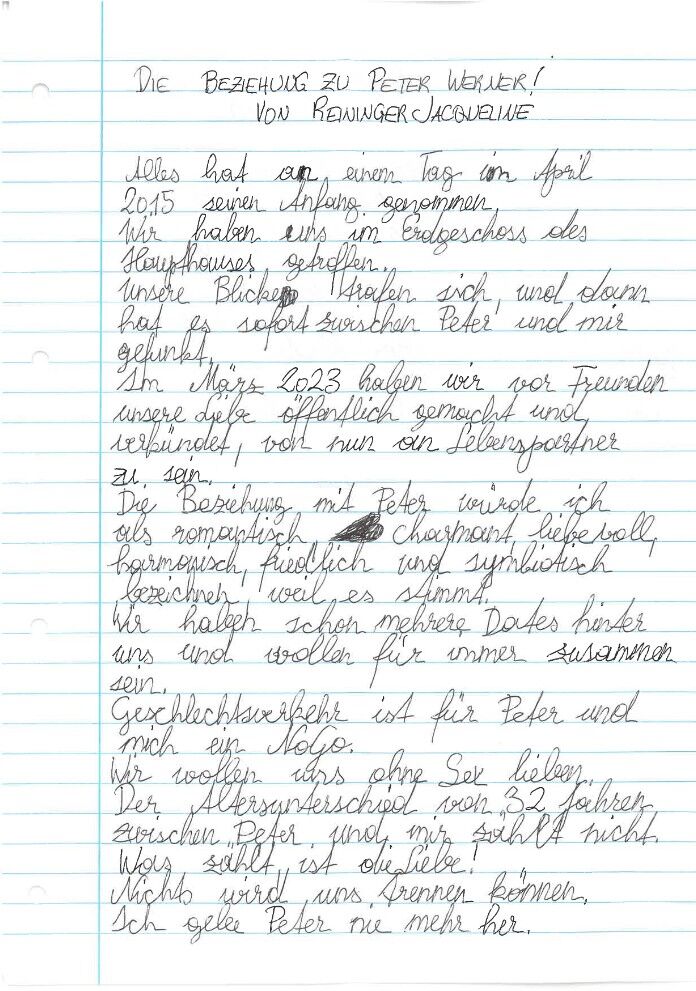 DIE BEZIEHUNG ZU PETER WERNER!
VON REININGER JACQUELINE
Alles hat an einem Tag im April
2015 seinen Anfang genommen.
Wir haben uns im Erdgeschoss des
Haupthauses getroffen.
Unsere Blicke trafen sich, und dann
hat es sofort zwischen Peter und mir
gefunkt.
Im März 2023 haben wir vor Freunden
unsere Liebe öffentlich gemacht und
verkündet, von nun an Lebenspartner
zu sein.
Die Beziehung mit Peter würde ich
als romantisch, charmant, liebevoll,
harmonisch, friedlich und symbiotisch
bezeichnen, weil es stimmt.
Wir haben schon mehrere Dates hinter
uns und wollen für immer zusammen
sein.
Geschlechtsverkehr ist für Peter und
mich ein NoGo.
Wir wollen uns ohne Sex lieben.
Der Altersunterschied von 32 Jahren
zwischen Peter und mir zählt nicht.
Was zählt, ist die Liebe!
Nichts wird uns trennen können.
Ich gebe Peter nie mehr her.